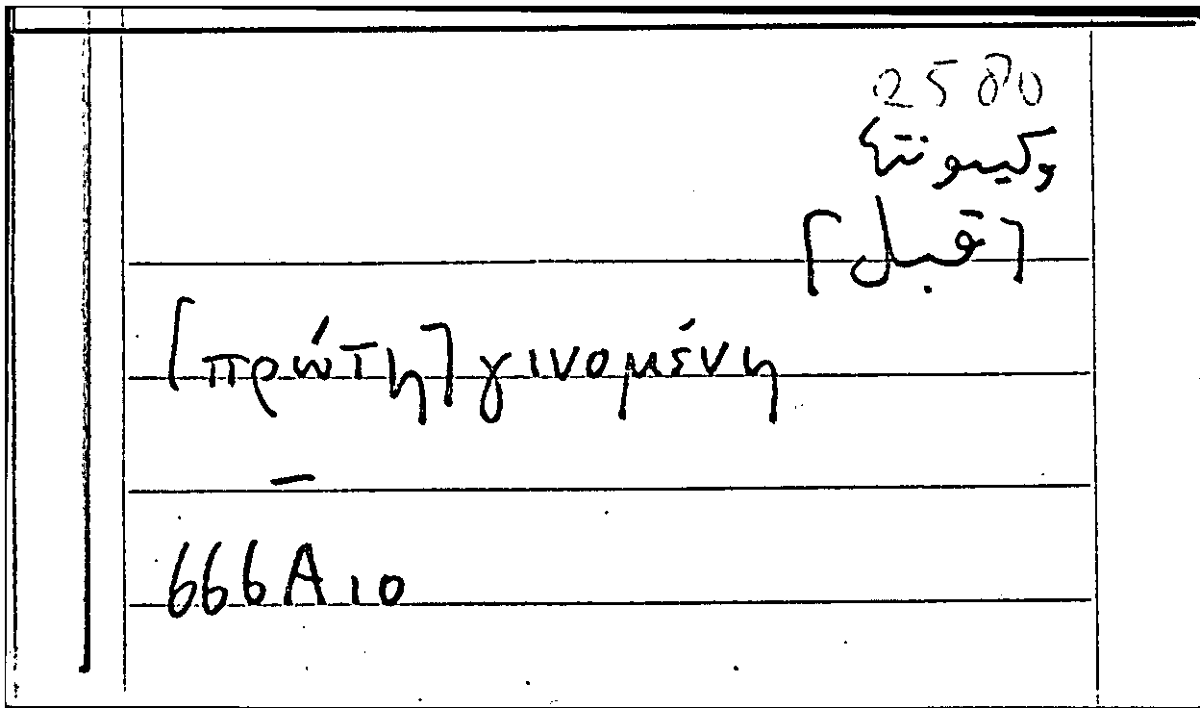 2580
وكينونتها
[قبل]
[πρώτη] γινομένη
—
666A10